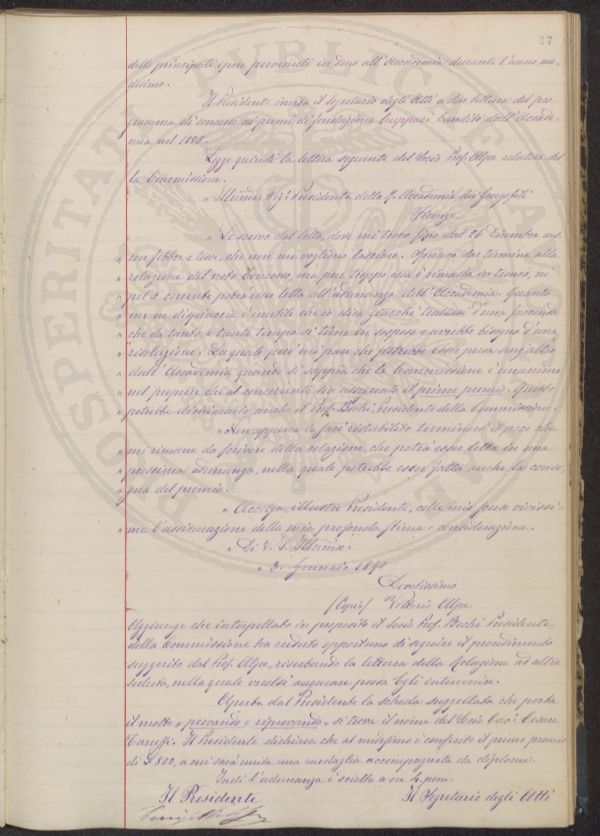 27
delle principali opere pervenute in dono all'Accademia durante l'anno me-
desimo.
Il Presidente invita il Segretario degli Atti a dar lettura del pro-
gramma di concorso ai premi di fondazione Cuppari bandito dall'Accade-
mia nel 1888.
Legge quindi la lettera seguente del Socio Prof. Alpe relatore del-
la Commissione.
" Illmo Sigr Presidente della R. Accademia dei Georgofili
Firenze
" Le scrivo dal letto, dove mi trovo fino dal 26 Dicembre
" con febbre e tosse, che non mi vogliono lasciare. Speravo dar termine alla
" relazione del noto Concorso, ma pur troppo essa è rimasta in tronco, nè
" pel 5 corrente potrà esser letta all'adunanza dell'Accademia. Quanto
" me ne dispiaccia è inutile che io dica giacchè trattasi d'una faccenda
" che da tanto, e tanto tempo si tiene in sospeso e avrebbe bisogno d'una
" risoluzione; la quale però mi pare che potrebbe esser presa senz'altro
" dall'Accademia quando si sappia che la Commissione è unanime
" nel proporre che al concorrente sia assegnato il primo premio. Questo
" potrebbe dichiararlo anche il Prof. Bechi Presidente della Commissione.
" Non appena io sarò ristabilito terminerò il poco che
" mi rimane da scrivere della relazione, che potrà esser letta in una
" prossima adunanza, nella quale potrebbe esser fatta anche la conse-
" gna del premio.
" Accolga, illustre Presidente, colle mie scuse vivissi-
" me l'assicurazione della mia profonda stima e considerazione.
" Di V. S. Illma
" 3. Gennaio 1890
Devotissimo
(Copia) Vittorio Alpe
Aggiunge che interpellato in proposito il Socio Prof. Bechi Presidente
della Commissione ha creduto opportuno di seguire il procedimento
suggerito dal Prof. Alpe, riserbando la lettura della Relazione ad altra
seduta, nella quale vuolsi augurare possa Egli intervenire.
Aperta dal Presidente la scheda suggellata che porta
il motto " provando e riprovando " si trova il nome del Socio Cav.
Il Presidente dichiara che al medesimo è conferito il primo premio
di L 800, a cui sarà unita una medaglia accompagnata da diploma.
Indi l'adunanza è sciolta a ore 4 pom.
Il Presidente
Il Segretario degli Atti
PROSPERITATI PUBLICAE AUGENDAE